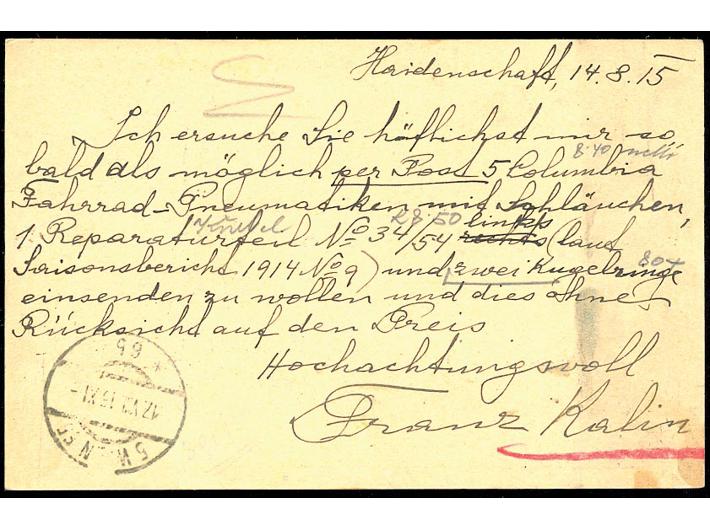 Haidenschaft, 14.8.15
Ich ersuche Sie höflichst mir so,
8·40 netto
bald als möglich per Post 5 Columbia
Fahrrad-Pneumatiken mit Schläuchen,
28·50 links
1 Reparaturteil No 34/54 rechts (laut
Saisonsbericht 1914 No 9) und zwei Kugelringe
80
einsenden zu wollen und dies ohne
Rücksicht auf den Preis
Hochachtungsvoll
Franz Kalin
* 66
17.VIII.15.XI-
5 WIEN